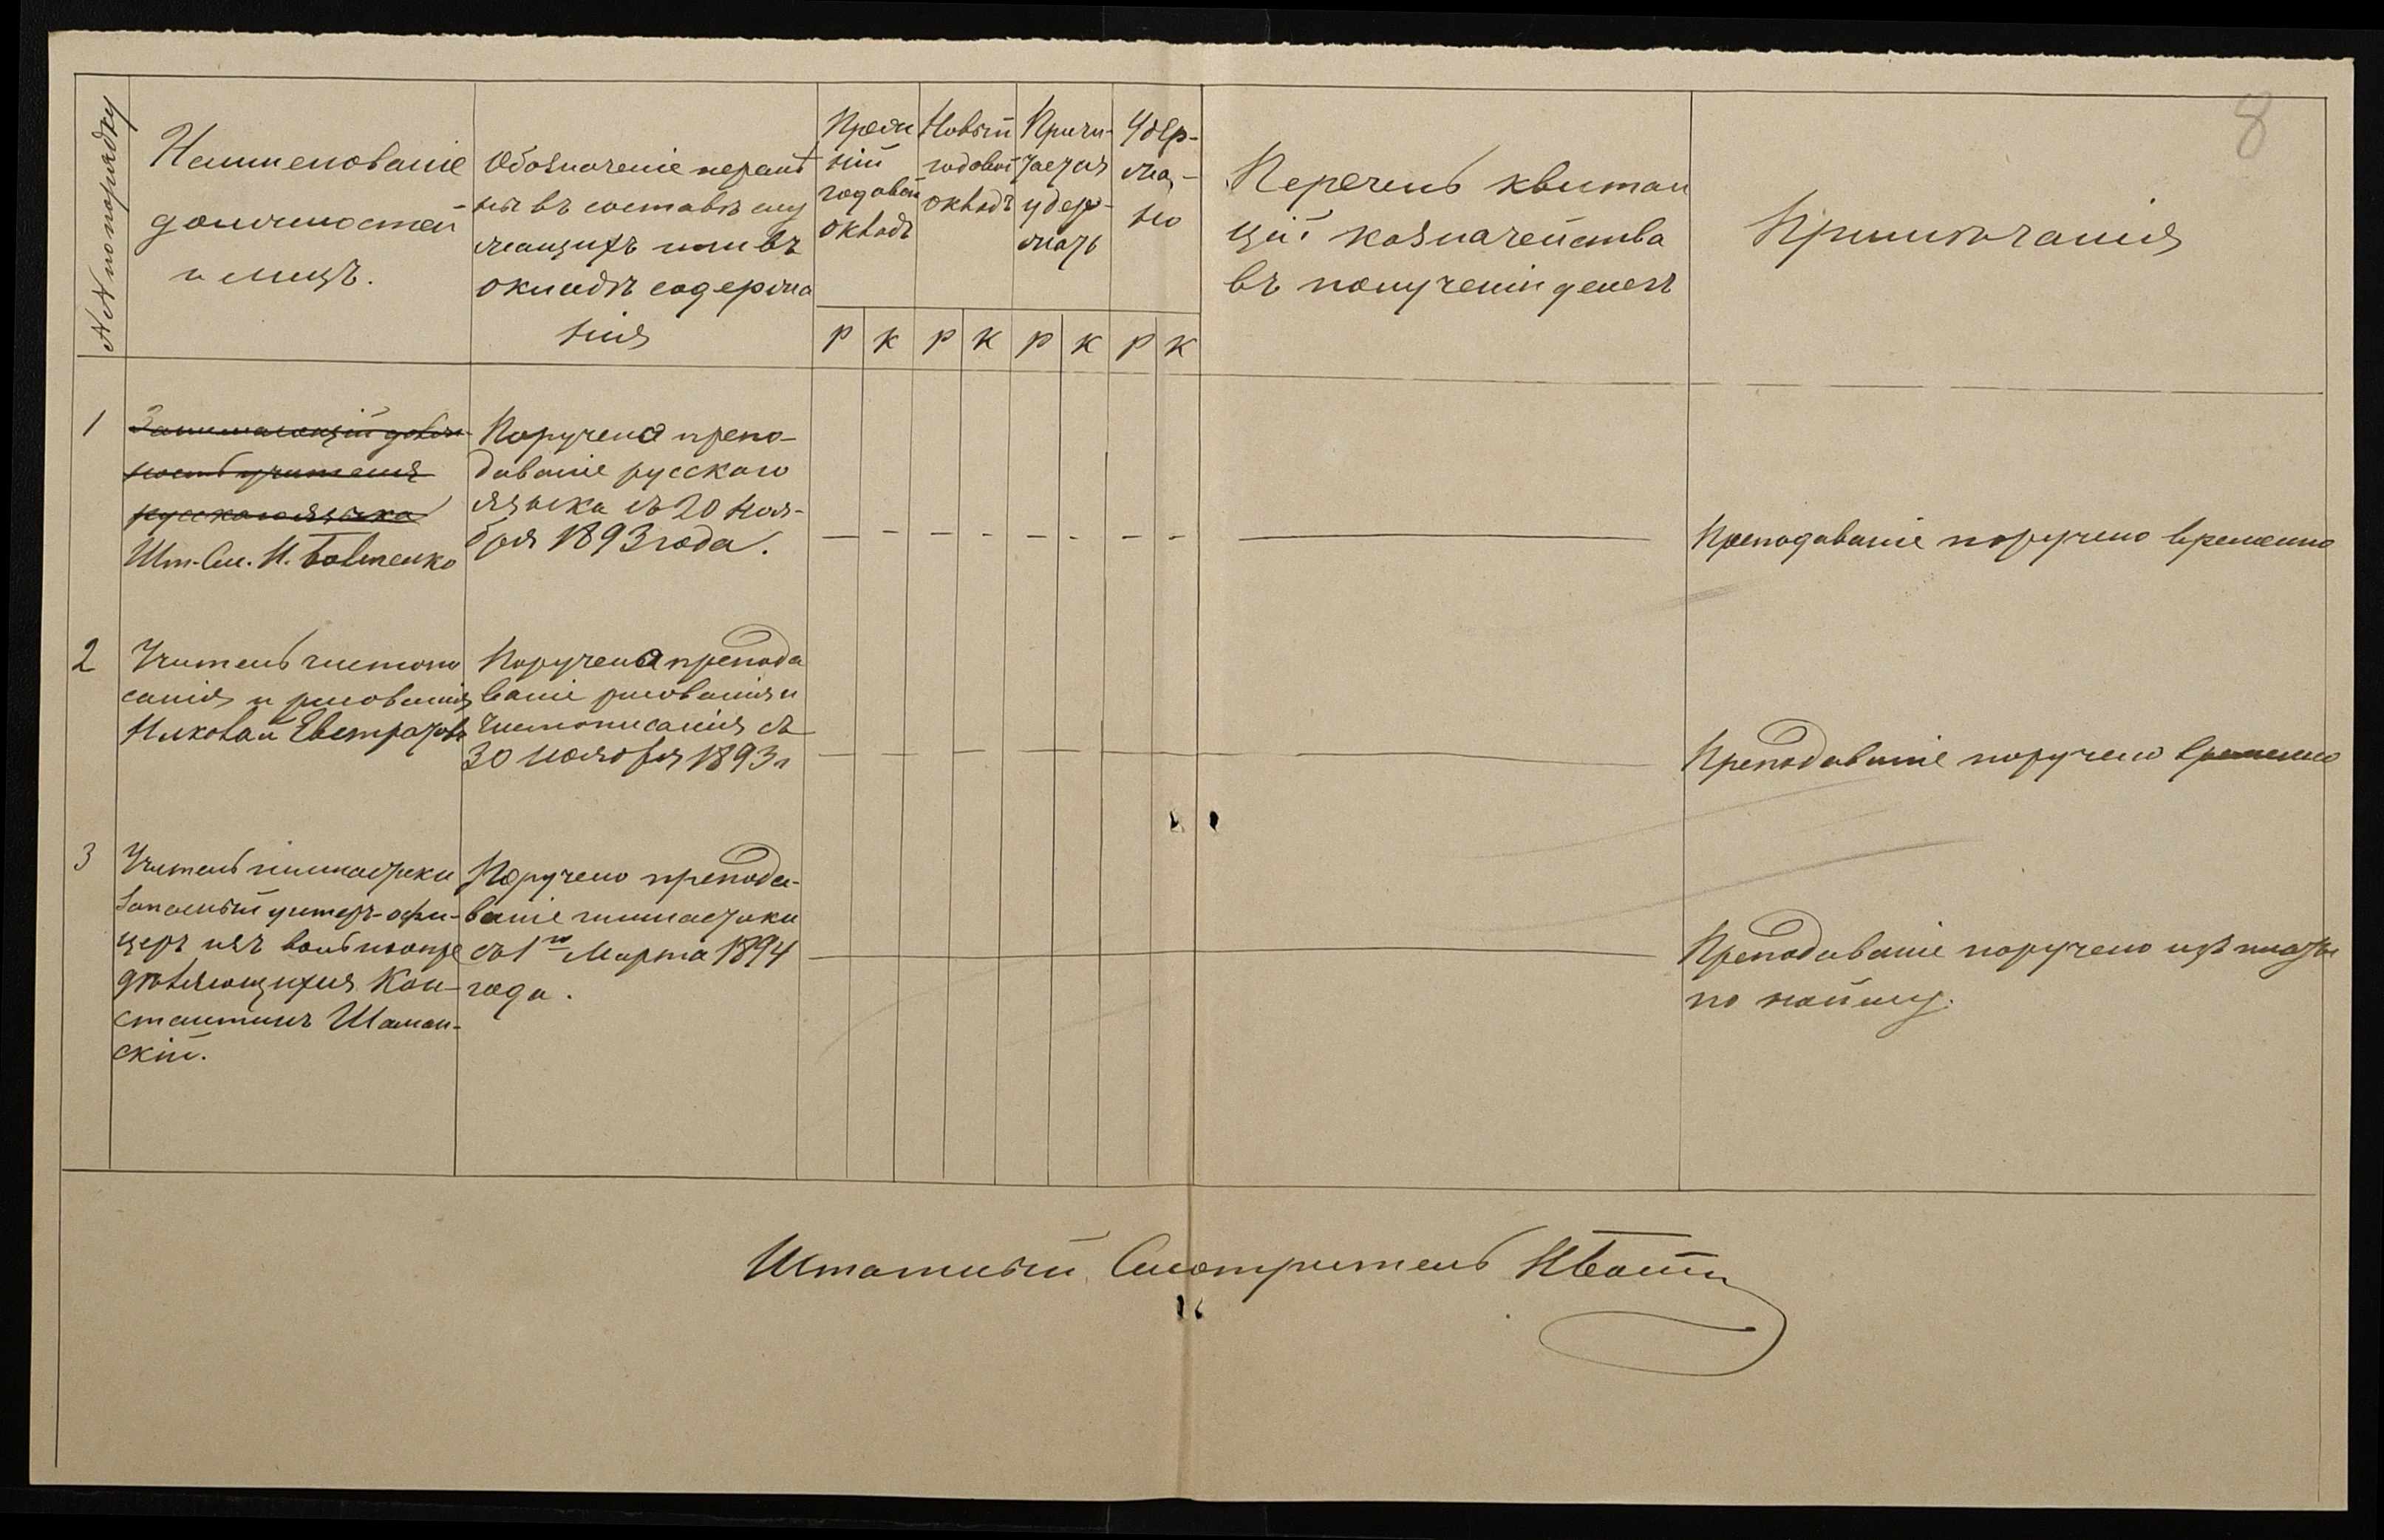 8
№№ по порядку
Наименованіе
должностей
и лицъ.
Обозначеніе перемѣ
нъ въ составѣ слу
жащихъ или въ
окладѣ содержа
нія
Преж
ній
годовой
окладъ
Новый
годовой
окладъ
Причи-
тается
удер-
жать
Удер-
жа-
но
Перечень квитан
цій казначейства
въ полученіи денегъ
Примѣчанія
Р К Р К Р К Р К
1
Занимающій долж-
ность учителя
русскаго языка
Шт. См. И.
Поручено препо-
даваніе русскаго
языка съ 20 Ноя-
бря 1893 года.
Преподаваніе поручено временно
2
Учитель чистопи
санія и рисованія
Николай Евстратовъ
Поручено препода
ваніе рисованія и
чистописанія съ
30 ноября 1893 г
Преподаваніе поручено временно
3
Учитель гимнастики
Запасный унтеръ-офи-
церъ изъ вольноопре
дѣляющихся Кон-
стантинъ Шаман-
скій.
Поручено препода-
ваніе гимнастики
съ 1го Марта 1894
года.
Преподаваніе поручено изъ платы
по найму.
Штатный Смотритель